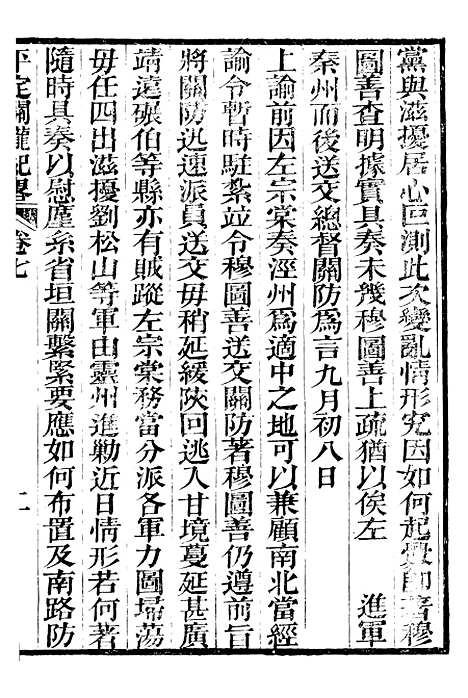 黨與滋擾居心叵測此次變亂情形究因如何起釁即著穆
圖善查明據實具奏未幾穆圖善上疏猶以俟左　進軍
秦州而後送交總督關防爲言九月初八日
上諭前因左宗棠奏涇州爲適中之地可以兼顧南北當經
諭令暫時駐紮並令穆圖善送交關防著穆圖善仍遵前旨
將關防迅速派員送交毋稍延緩陝回逃入甘境蔓延甚廣
靖遠碾伯等縣亦有賊蹤左宗棠務當分派各軍力圖埽蕩
毋任四出滋擾劉松山等軍由靈州進勦近日情形若何著
隨時具奏以慰廑系省垣關繫緊要應如何布置及南路防
平定關隴紀畧　卷七　二